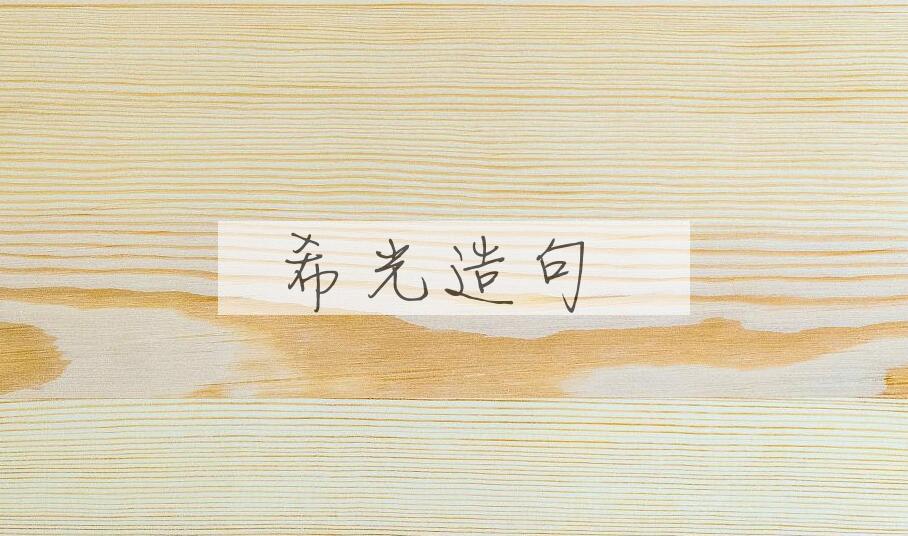 希光造句